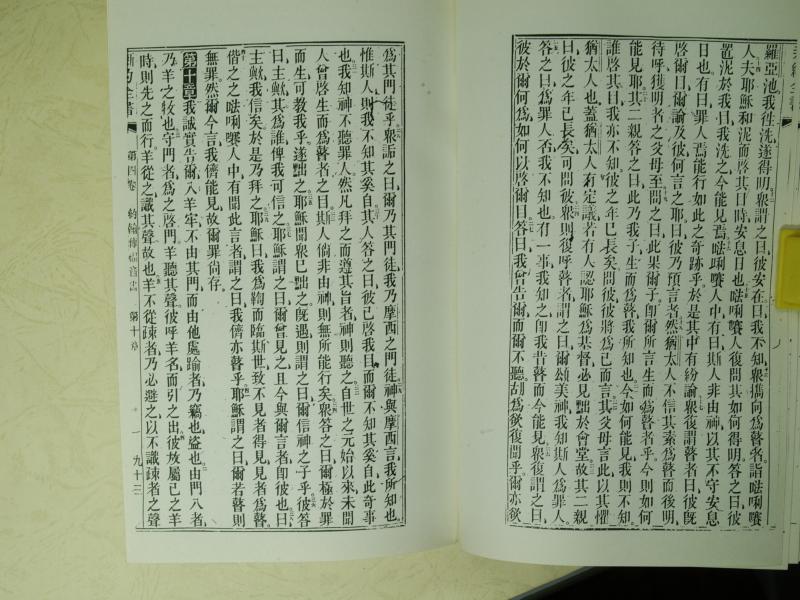 羅亞池我往洗遂得明衆謂之曰彼安在曰我不知衆攜向爲瞽者詣㗳唎㘔
人夫耶穌和泥而啓其目時安息日也㗳唎㘔人復問其如何得明答之曰彼
置泥於我目我洗之今能見焉㗳唎㘔人中有曰斯人非由神以其不守安息
日也有曰罪人焉能行如此之奇跡乎於是其中有紛論衆復謂瞽者曰彼旣
啓爾目爾論及彼何言之耶曰彼乃預言者然猶太人不信其素爲瞽而後明
待呼獲明者之父母至問之曰此果爾子卽爾所言生而爲瞽者乎今則如何
能見耶其二親答之曰此乃我子生而爲瞽我所知也今如何能見我則不知
誰啓其目我亦不知彼之年已長矣問彼彼將爲己而言其父母言此以其懼
猶太人也蓋猶太人有定議若有人認耶穌爲基督必見黜於會堂故其二親
曰彼之年已長矣可問彼衆則復呼瞽者謂之曰爾頌美神我知斯人爲罪人
答之曰爲罪人否我不知也有一事我知之卽我昔瞽而今能見衆復謂之曰
彼於爾何爲如何以啓爾目答曰我曾告爾而爾不聽胡爲欲復聞乎爾亦欲
爲其門徒乎衆詬之曰爾乃其門徒我乃摩西之門徒神與摩西言我所知也
惟斯人則我不知其奚自其人答之曰彼已啓我目而爾不知其奚自此奇事
也我知神不聽罪人然凡拜之而遵其旨者神則聽之自世之元始以來未聞
人曾啓生而爲瞽者之目斯人倘非由神則無所能行矣衆答之曰爾極於罪
而生可教我乎遂黜之耶穌聞衆已黜之旣遇則謂之曰爾信神之子乎彼答
曰主歟其爲誰俾我可信之耶穌謂之曰爾曾見之且今與爾言者卽彼也曰
主歟我信矣於是乃拜之耶穌曰我爲鞫而臨斯世致不見者得見見者爲瞽
偕之之㗳唎㘔人中有聞此言者謂之曰我儕亦瞽乎耶穌謂之曰爾若瞽則
無罪然爾今言我儕能見故爾罪尙存
第十章我誠實告爾入羊牢不由其門而由他處踰者乃竊也盜也由門入者
乃羊之牧也守門者爲之啓門羊聽其聲彼呼羊名而引之出彼放屬己之羊
時則先之而行羊從之識其聲故也羊不從疎者乃必避之以不識疎者之聲
第四卷 約翰傳福音書 第十章 九十三